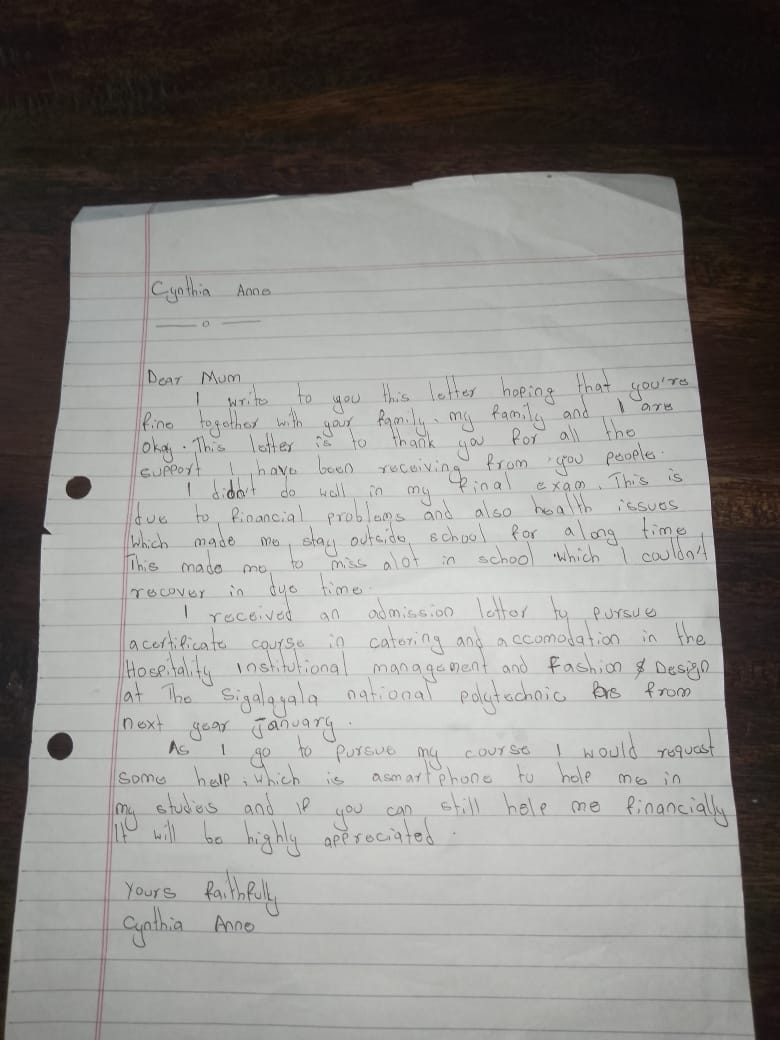 Cynthia Anne
Dear Mum
I write to you this letter hoping that you're
fine together with your family. my family and I are
okay. This letter is to thank you for all the
support I have been receiving from you people.
I didn't do well in my final exam. This is
due to financial problems and also health issues
which made me stay outside school for along time
This made me to miss alot in school which I couldn't
recover in due time.
I received an admission letter to pursue
acertificate course in catering and accomodation in the
Hospitality Institutional management and Fashion & Design
at The Sigalagala national polytechnic from
next year January.
As I go to pursue my course I would request
some help, which is asmartphone to help me in
my studies and if you can still help me financially
It will be highly appreciated.
Yours faithfully
Cynthia Anne